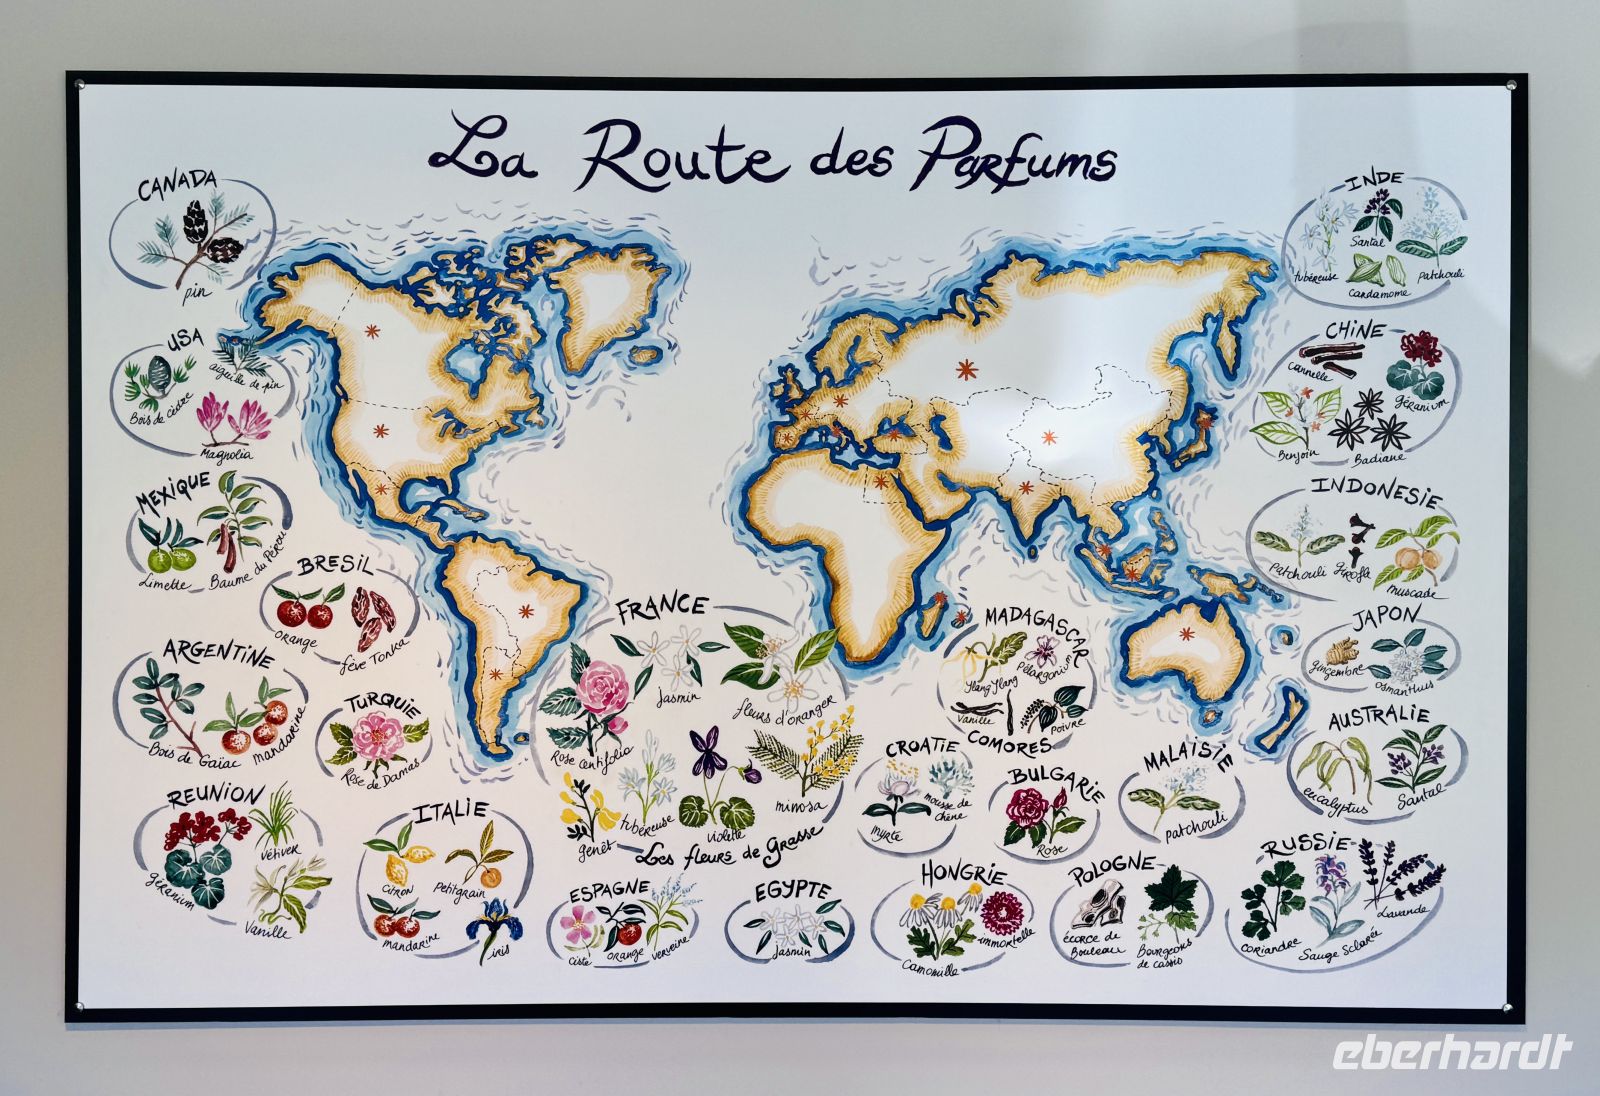 La Route des Parfums
CANADA
pin
USA
aiguille de pin
Bois de cèdre
Magnolia
MEXIQUE
Limette
Baume du Pérou
BRESIL
orange
fève Tonka
ARGENTINE
Bois de Gaïac
mandarine
TURQUIE
Rose de Damas
REUNION
géranium
vétiver
Vanille
ITALIE
citron
Petitgrain
mandarine
iris
FRANCE
Rose Centifolia
Jasmin
fleurs d'oranger
genêt
tubéreuse
violette
mimosa
Les fleurs de Grasse
ESPAGNE
ciste
orange
verveine
EGYPTE
Jasmin
MADAGASCAR
Ylang Ylang
Pélargonium
Vanille
Poivre
COMORES
CROATIE
myrte
mousse de
chêne
BULGARIE
Rose
MALAISIE
patchouli
HONGRIE
Camomille
immortelle
POLOGNE
écorce de
Bouleau
Bourgeons
de cassis
RUSSIE
coriandre
Sauge Sclarée
Lavande
INDE
tubéreuse
Santal
Cardamome
patchouli
CHINE
cannelle
géranium
Benjoin
Badiane
INDONESIE
Patchouli
girofle
muscade
JAPON
gingembre
osmanthus
AUSTRALIE
eucalyptus
Santal
eberhardt